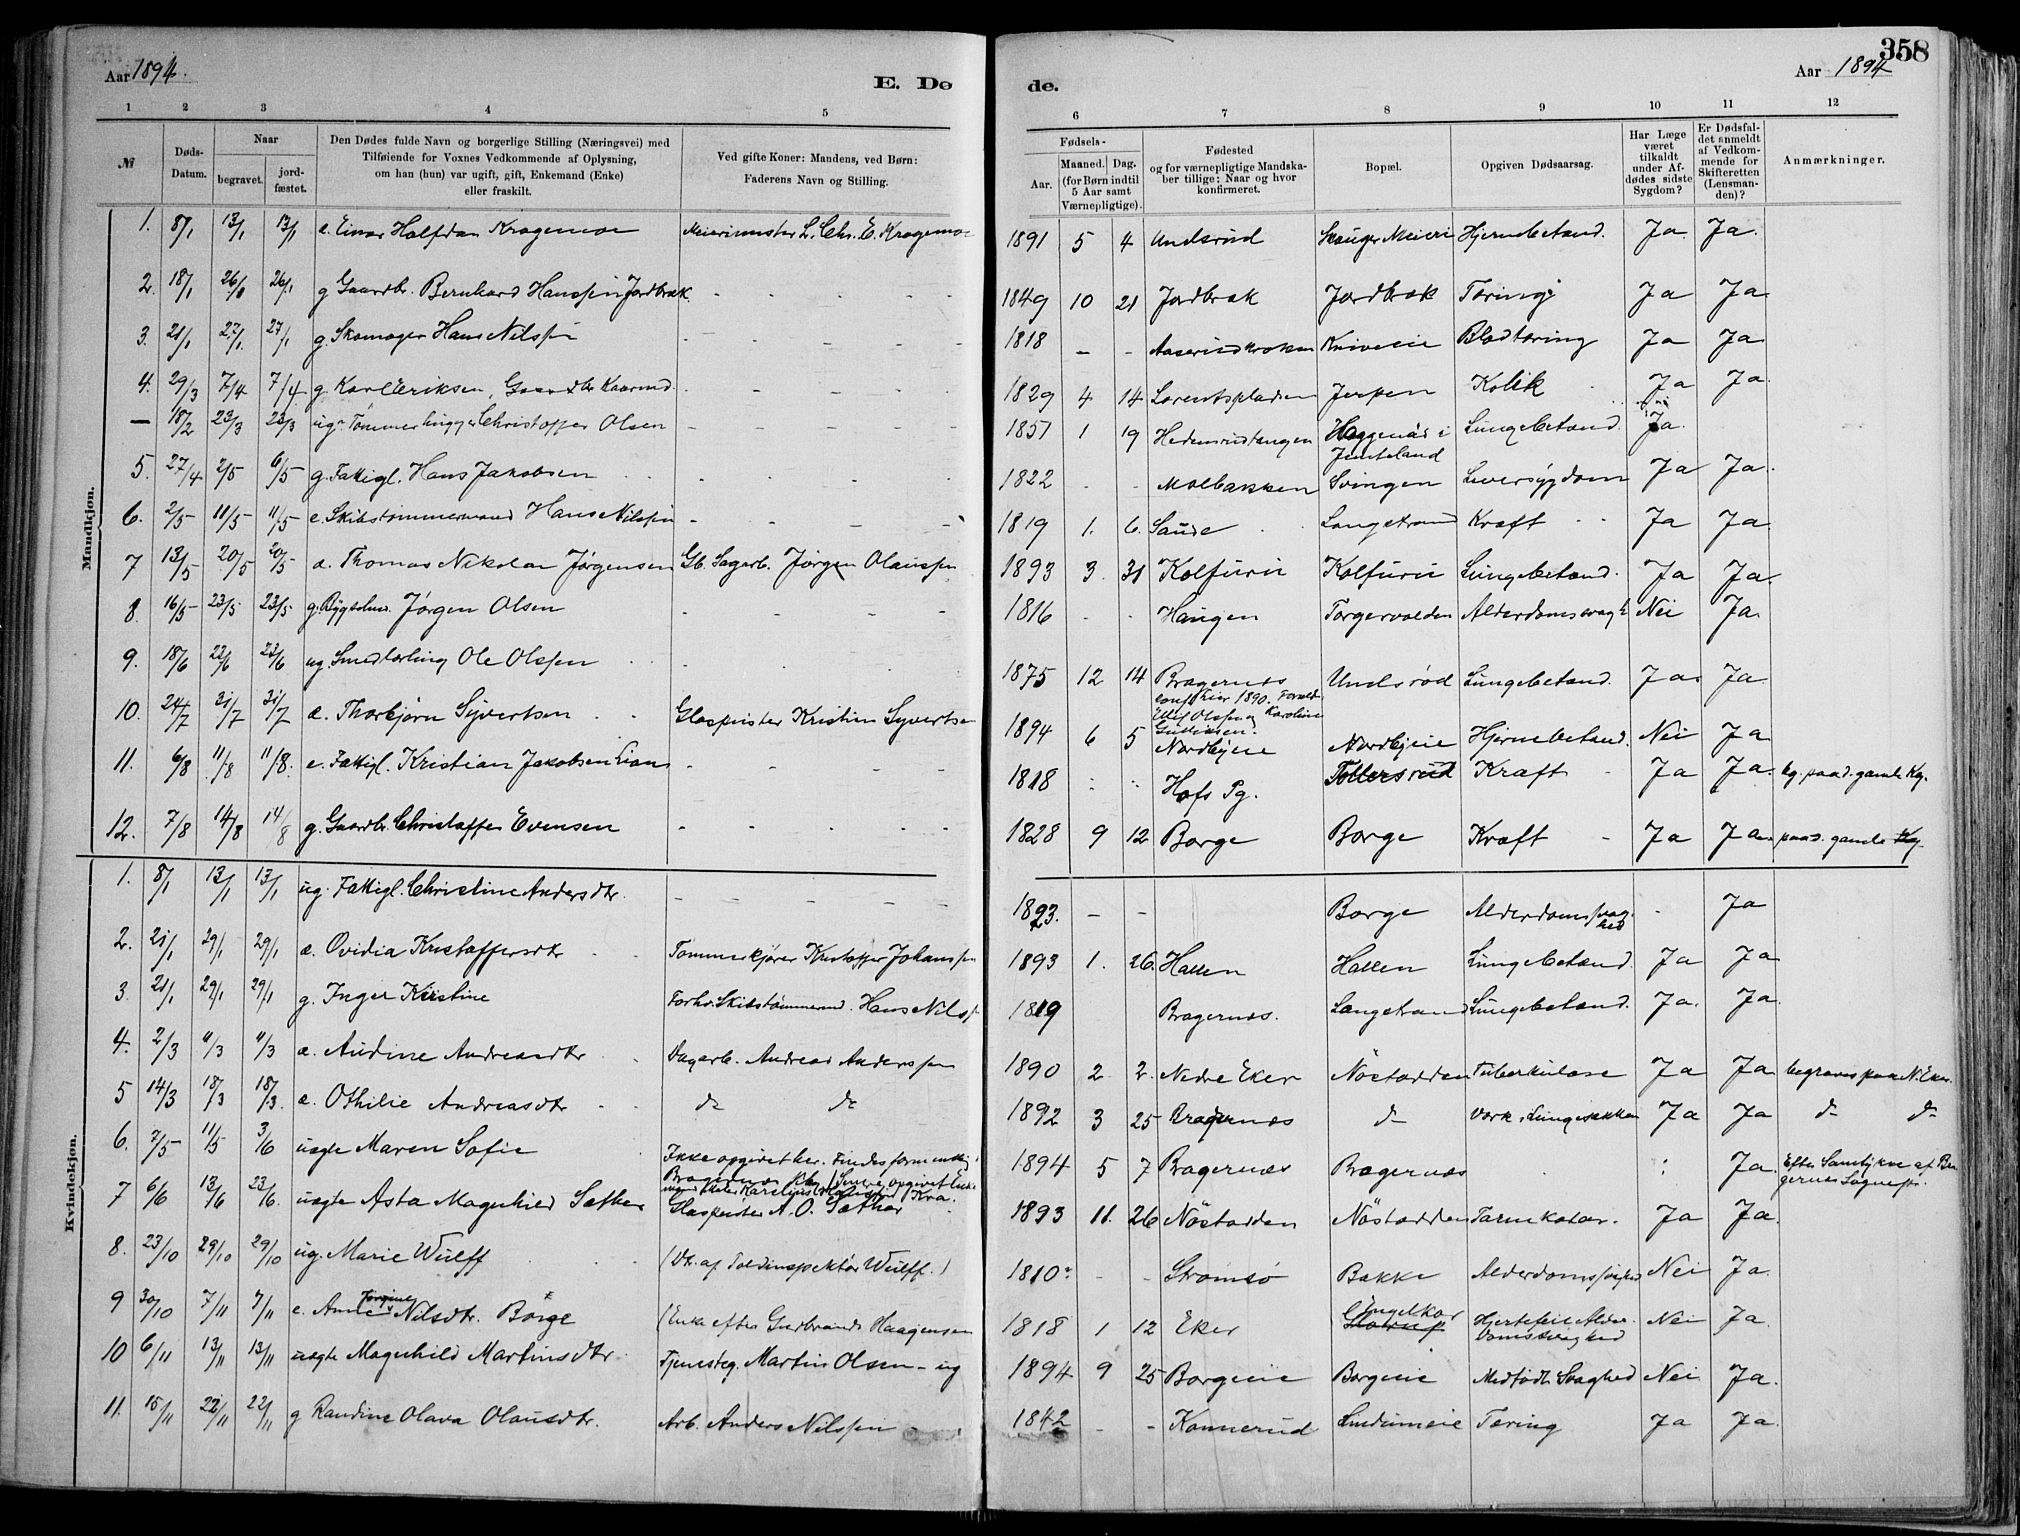 358
Aar 1894.
E. Dø
de.
Aar 1894
1 2 3 4 5
6 7 8 9 10 11 12
№
Døds-
Datum.
Naar
begravet.
jord-
fæstet.
Den Dødes fulde Navn og borgerlige Stilling (Næringsvei) med
Tilføiende for Voxnes Vedkommende af Oplysning,
om han (hun) var ugift, gift, Enkemand (Enke)
eller fraskilt.
Ved gifte Koner: Mandens, ved Børn:
Faderens Navn og Stilling.
Fødsels-
Aar.
Maaned. Dag.
(for Børn indtil
5 Aar samt
Værnepligtige).
Fødested
og for værnepligtige Mandska-
ber tillige: Naar og hvor
konfirmeret.
Bopæl.
Opgiven Dødsaarsag.
Har Læge
været
tilkaldt
under Af-
dødes sidste
Sygdom?
Er Dødsfal-
det anmeldt
af Vedkom-
mende for
Skifteretten
(Lensman-
den)?
Anmærkninger.
Mandkjøn.
1. 8/1 13/1 13/1 e. Einar Halfdan Kragemoe Meierimester L. Chr. E. Kragemoe 1891 5 4 Undsrud Skauger Meieri Hjernebetænd. Ja Ja.
2. 18/1 26/1 26/1 g Gaardbr. Bernhard Hanssen Jordbræk 1849 10 21 Jordbræk Jordbræk Tæring Ja Ja
3. 21/1 27/1 27/1 g. Skomager Hans Nilssen 1818 - - Aaserudkroken Kniveeie Blodtæring Ja Ja
4. 29/3 7/4 7/4 g Karl Eriksen, Gaardbr 1829 4 14 Lorentspladsen Jerpen Kolik Ja Ja.
— 18/2 23/3 23/3 ug. Tømmerhugger Christoffer Olsen 1851 1 19 Hedensrudtangen Haggenås i Jemteland Lungebetænd. Ja.
5. 27/4 2/5 6/5 g. Fattigl. Hans Jakobsen 1822 - - Molbakken Svingen Leversygdom Ja Ja.
6. 2/5 11/5 11/5 e. Skibstømmermand Hans Nilssen 1819 1. 6. Saude Langstrand Kræft Ja Ja.
7 13/5 20/5 20/5 æ. Thomas Nikolai Jørgensen Gb. Sagarb. Jørgen Olaussen 1893 3 31 Kolfuru Kolfuru Lungebetænd. Ja Ja.
8. 16/5 23/5 23/5 g. Jørgen Olsen 1816 Haugen Torgersvolden Alderdomssvagh. Nei Ja.
9. 18/6 23/6 23/6 ug. Smedlærling Ole Olssen 1875 12 14 Bragernæs Undsrød Lungebetænd. Ja Ja
conf. her 1890. Foræld.
Karoline
10. 24/7 31/7 31/7 æ. Thorbjørn Syvertsen Glaspuster Kristian Syvertsen 1894 6 5 Nordbyeie Nordbyeie Hjernebetænd. Nei Ja
11. 6/8 11/8 11/8. e. Fattigl. Kristian Jakobsen Lian 1818 Hofs Pg. Tollersrud Kræft Ja Ja. bg. paa d. gamle Kg.
12. 7/8 14/8 14/8 g. Gaardbr. Christoffer Evensen 1828 9 12 Borge Borge Kræft Ja Ja paa d. gamle Kg.
Kvindekjøn.
1. 8/1 13/1 13/1 ug. Fattigl. Christine Andersdtr. 1823. - - Borge Alderdomssvaghed - Ja
2. 21/1 29/1 29/1 æ. Ovidia Kristoffersdtr Tømmerkjører Kristoffer Johanssen 1893 1. 26. Hallen Hallen Lungebetænd. Ja Ja
3. 21/1 29/1 29/1 g. Inger Kirstine Forhv. Skibstømmerm. Hans Nilss 1819 Bragernæs. Langstrand Lungebetænd. Ja. Ja.
4. 2/3 11/3 11/3 æ. Audine Andreasdtr Dagarb. Andreas Anderssen 1890 2 2. Nedre Eker Nöstodden Tuberkulose Ja Ja begraves paa N. Eker
5 14/3 18/3 18/3. æ. Othilie Andreasdtr do do 1892 3 25 Bragernæs do Værk i Lungesækken Ja Ja do do
6. 7/5 11/5 3/6 uægte Maren Sofie Ikke opgivet her. 1894 5 7 Bragernæs Bragernæs Ja. Efter Samtykke af Bragernæs Sognepr.
7 6/6 13/6 23/6. uægte Asta Magnhild Sæther Glaspuster A. O. Sæther 1893 11. 26 Nöstodden Nöstodden Tarmkatar. Ja Ja.
8. 23/10 29/10 29/10 ug. Marie Wulff (Dr. af Toldinspektør Wulff.) 1810 - - Strømsø Bakke Alderdomssvaghed Nei Ja.
9 30/10 7/11 7/11 e. Anne Jørgine Nilsdtr. Borge (Enke efter Gudbrand Haagensen 1818 1 12 Eker Hjertefeil Alderdomssvaghed Nei Ja.
10 6/11 13/11 13/11 uægte Magnhild Martinsdtr Tjenesteg. Martin Olsen - ug 1894 9 25 Borgeeie Borgeeie Medfødt Svaghed Nei Ja.
11. 15/11 22/11 22/11 g Randine Olava Olausdtr. Arb. Anders Nilssen 1842 - - Konnerud Lindumeie Tæring Ja Ja.